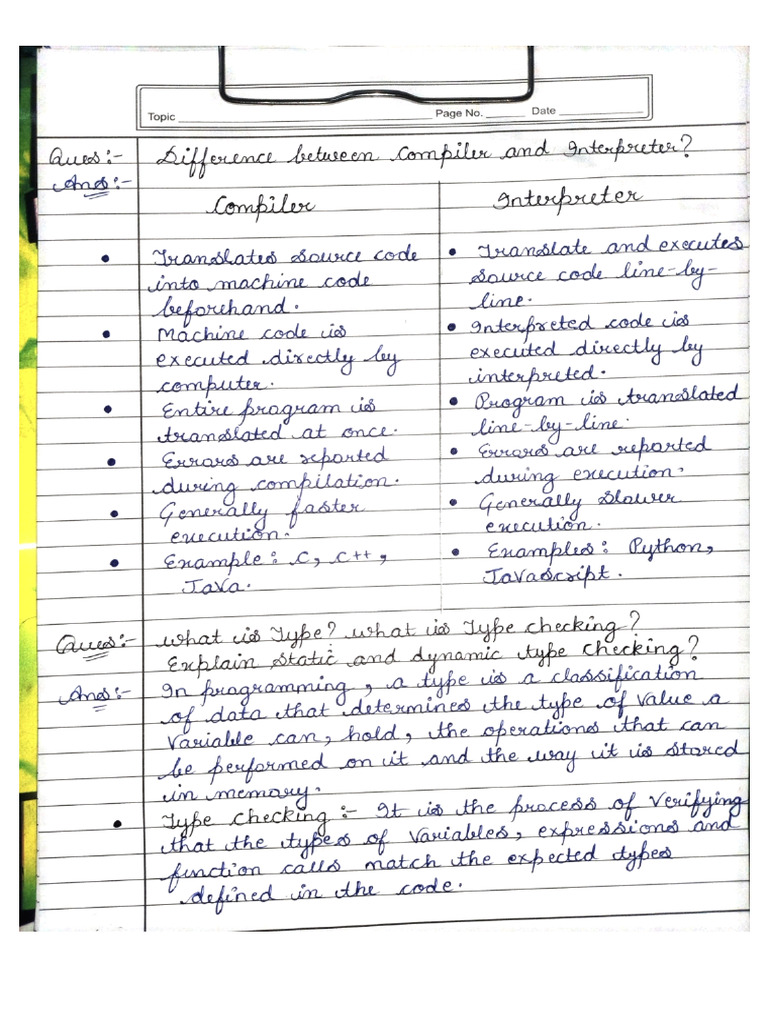 Topic Page No. Date
Ques:- Difference between Compiler and Interpreter?
Ans:-
Compiler
Interpreter
• Translates source code
into machine code
beforehand.
• Machine code is
executed directly by
computer.
• Entire program is
translated at once.
• Errors are reported
during compilation.
• Generally faster
execution.
• Example: C, C++,
Java.
• Translate and executes
source code line-by-
line.
• Interpreted code is
executed directly by
interpreted.
• Program is translated
line-by-line.
• Errors are reported
during execution.
• Generally slower
execution.
• Examples: Python,
JavaScript.
Ques:- What is Type? What is Type checking?
Explain Static and dynamic type checking?
Ans:- In programming, a type is a classification
of data that determines the type of value a
variable can, hold, the operations that can
be performed on it and the way it is stored
in memory.
• Type checking :- It is the process of verifying
that the types of variables, expressions and
function calls match the expected types
defined in the code.